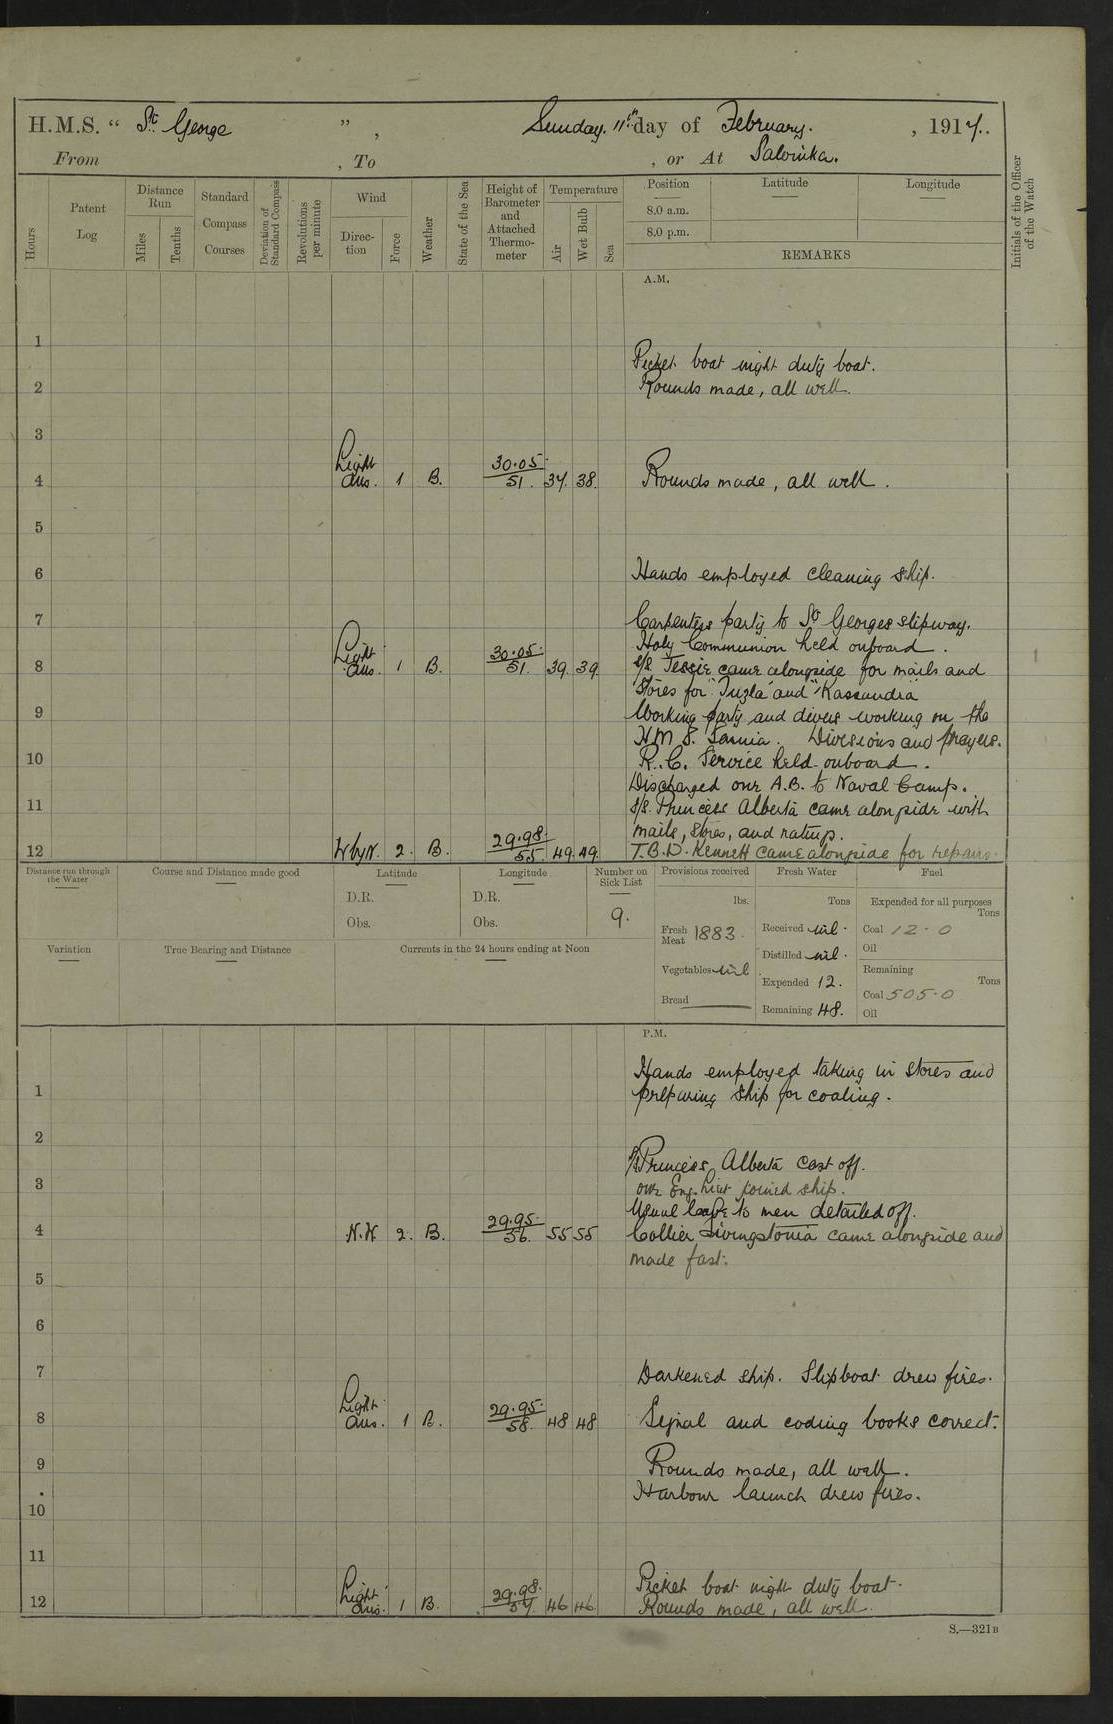 H.M.S. “ St George ” , Sunday. 11th day of February. , 1917.
From , To , or At Salonika.
Hours
Patent Log
Distance Run
Miles
Tenths
Standard Compass Courses
Deviation of Standard Compass
Revolutions per minute
Wind
Direction
Force
Weather
State of the Sea
Height of Barometer and Attached Thermometer
Temperature
Air
Wet Bulb
Sea
Position
8.0 a.m.
8.0 p.m.
Latitude
Longitude
REMARKS
Initials of the Officer of the Watch
A.M.
1
Picket boat night duty boat.
2 Rounds made, all well.
3
4 Light Airs. 1 B. 30.05 51. 37. 38. Rounds made, all well.
5
6 Hands employed cleaning ship.
7 Carpenters party to St Georges slipway.
Holy Communion held onboard.
8 Light Airs. 1 B. 30.05. 51. 39. 39. S/S. Tessie came alongside for mails and
stores for "Tuzla" and "Kassandra"
9 Working party and divers working on the
H.M.S. Sarnia. Divisions and prayers.
10 R.C. Service held onboard.
Discharged one A.B. to Naval Camp.
11 S/S. Princess Alberta came alongside with
mails, stores, and ratings.
12 W by N. 2. B. 29.98. 55. 49. 49. T.B.D. Kennett came alongside for repairs.
Distance run through the Water
Course and Distance made good
Latitude
D.R.
Obs.
Longitude
D.R.
Obs.
Number on Sick List
9.
Provisions received
lbs.
Fresh Meat 1883.
Vegetables nil
Bread
Fresh Water
Tons
Received nil.
Distilled nil.
Expended 12.
Remaining 48.
Fuel
Expended for all purposes
Tons
Coal 12.0
Oil
Remaining
Tons
Coal 505.0
Oil
Variation
True Bearing and Distance
Currents in the 24 hours ending at Noon
P.M.
Hands employed taking in stores and
1 preparing ship for coaling.
2
S/S Princess Alberta cast off.
3 one Eng. Lieut joined ship.
Usual leave to men detailed off.
4 N.W 2. B. 29.95. 56. 55 55 Collier Livingstonia came alongside and
made fast.
5
6
7 Darkened ship. Slipboat drew fires.
8 Light Airs. 1 B. 29.95. 58. 48 48 Signal and coding books correct.
9 Rounds made, all well.
Harbour launch drew fires.
10
11
Picket boat night duty boat.
12 Light Airs. 1 B. 29.98. 57 46 46 Rounds made, all well.
S.—321B